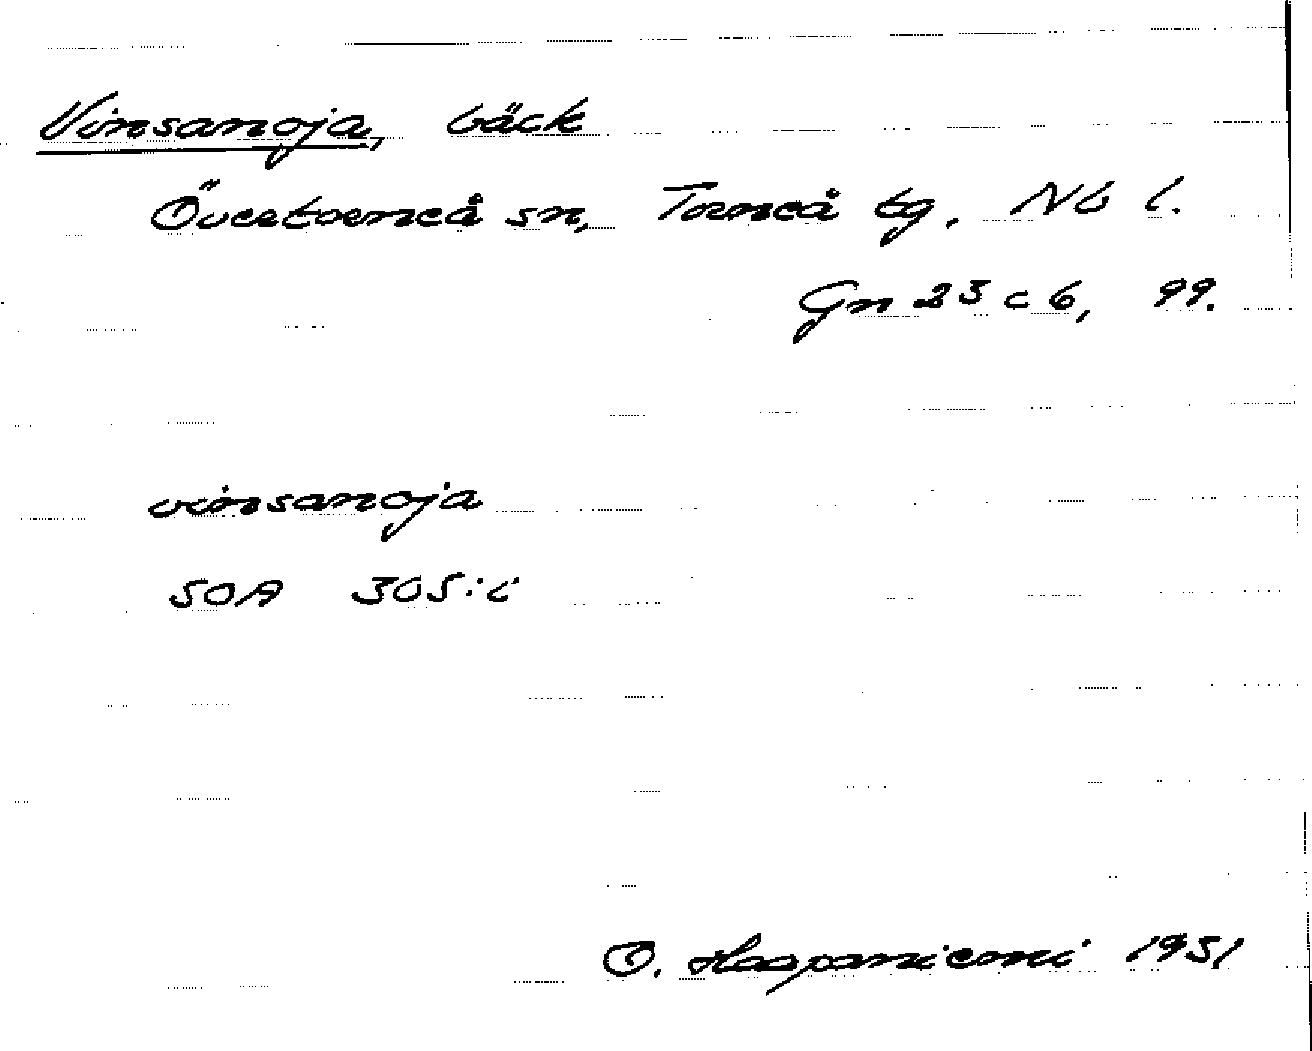 Vinsanoja, bäck
Övertorneå sn, Torneå tg. Nb l.
Gn 23 c 6, 99.
vinsanoja
SOA 305:i
O. Haapaniemi 1951